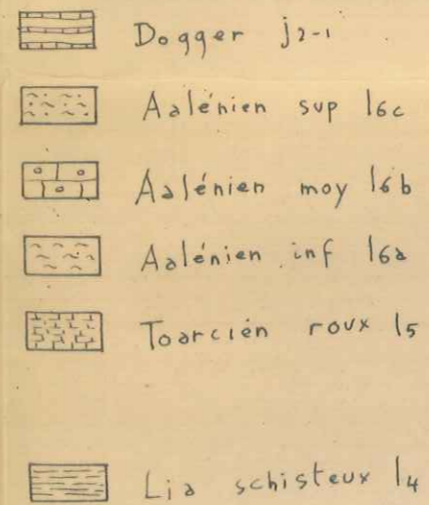 Dogger j2-1
Aalénien sup l6c
Aalénien moy l6b
Aalénien inf l6a
Toarcién roux l5
Lia schisteux l4